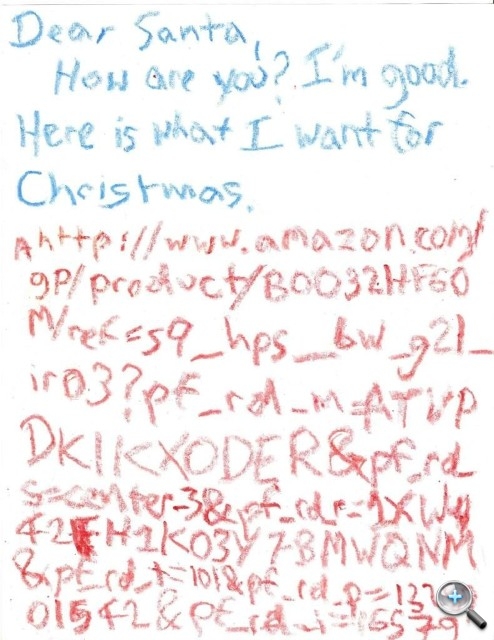 Dear Santa,
How are you? I'm good.
Here is what I want for
Christmas.
A http://www.amazon.com/
gp/product/B0032HF60
M/ref=s9_hps_bw_g21_
ir03?pf_rd_m=ATVP
DKIKX0DER&pf_rd_
s=center-3&pf_rd_r=1XW4
42FH1K03Y78MWQNM
&pf_rd_t=101&pf_rd_p=137
01542&pf_rd_i=16579